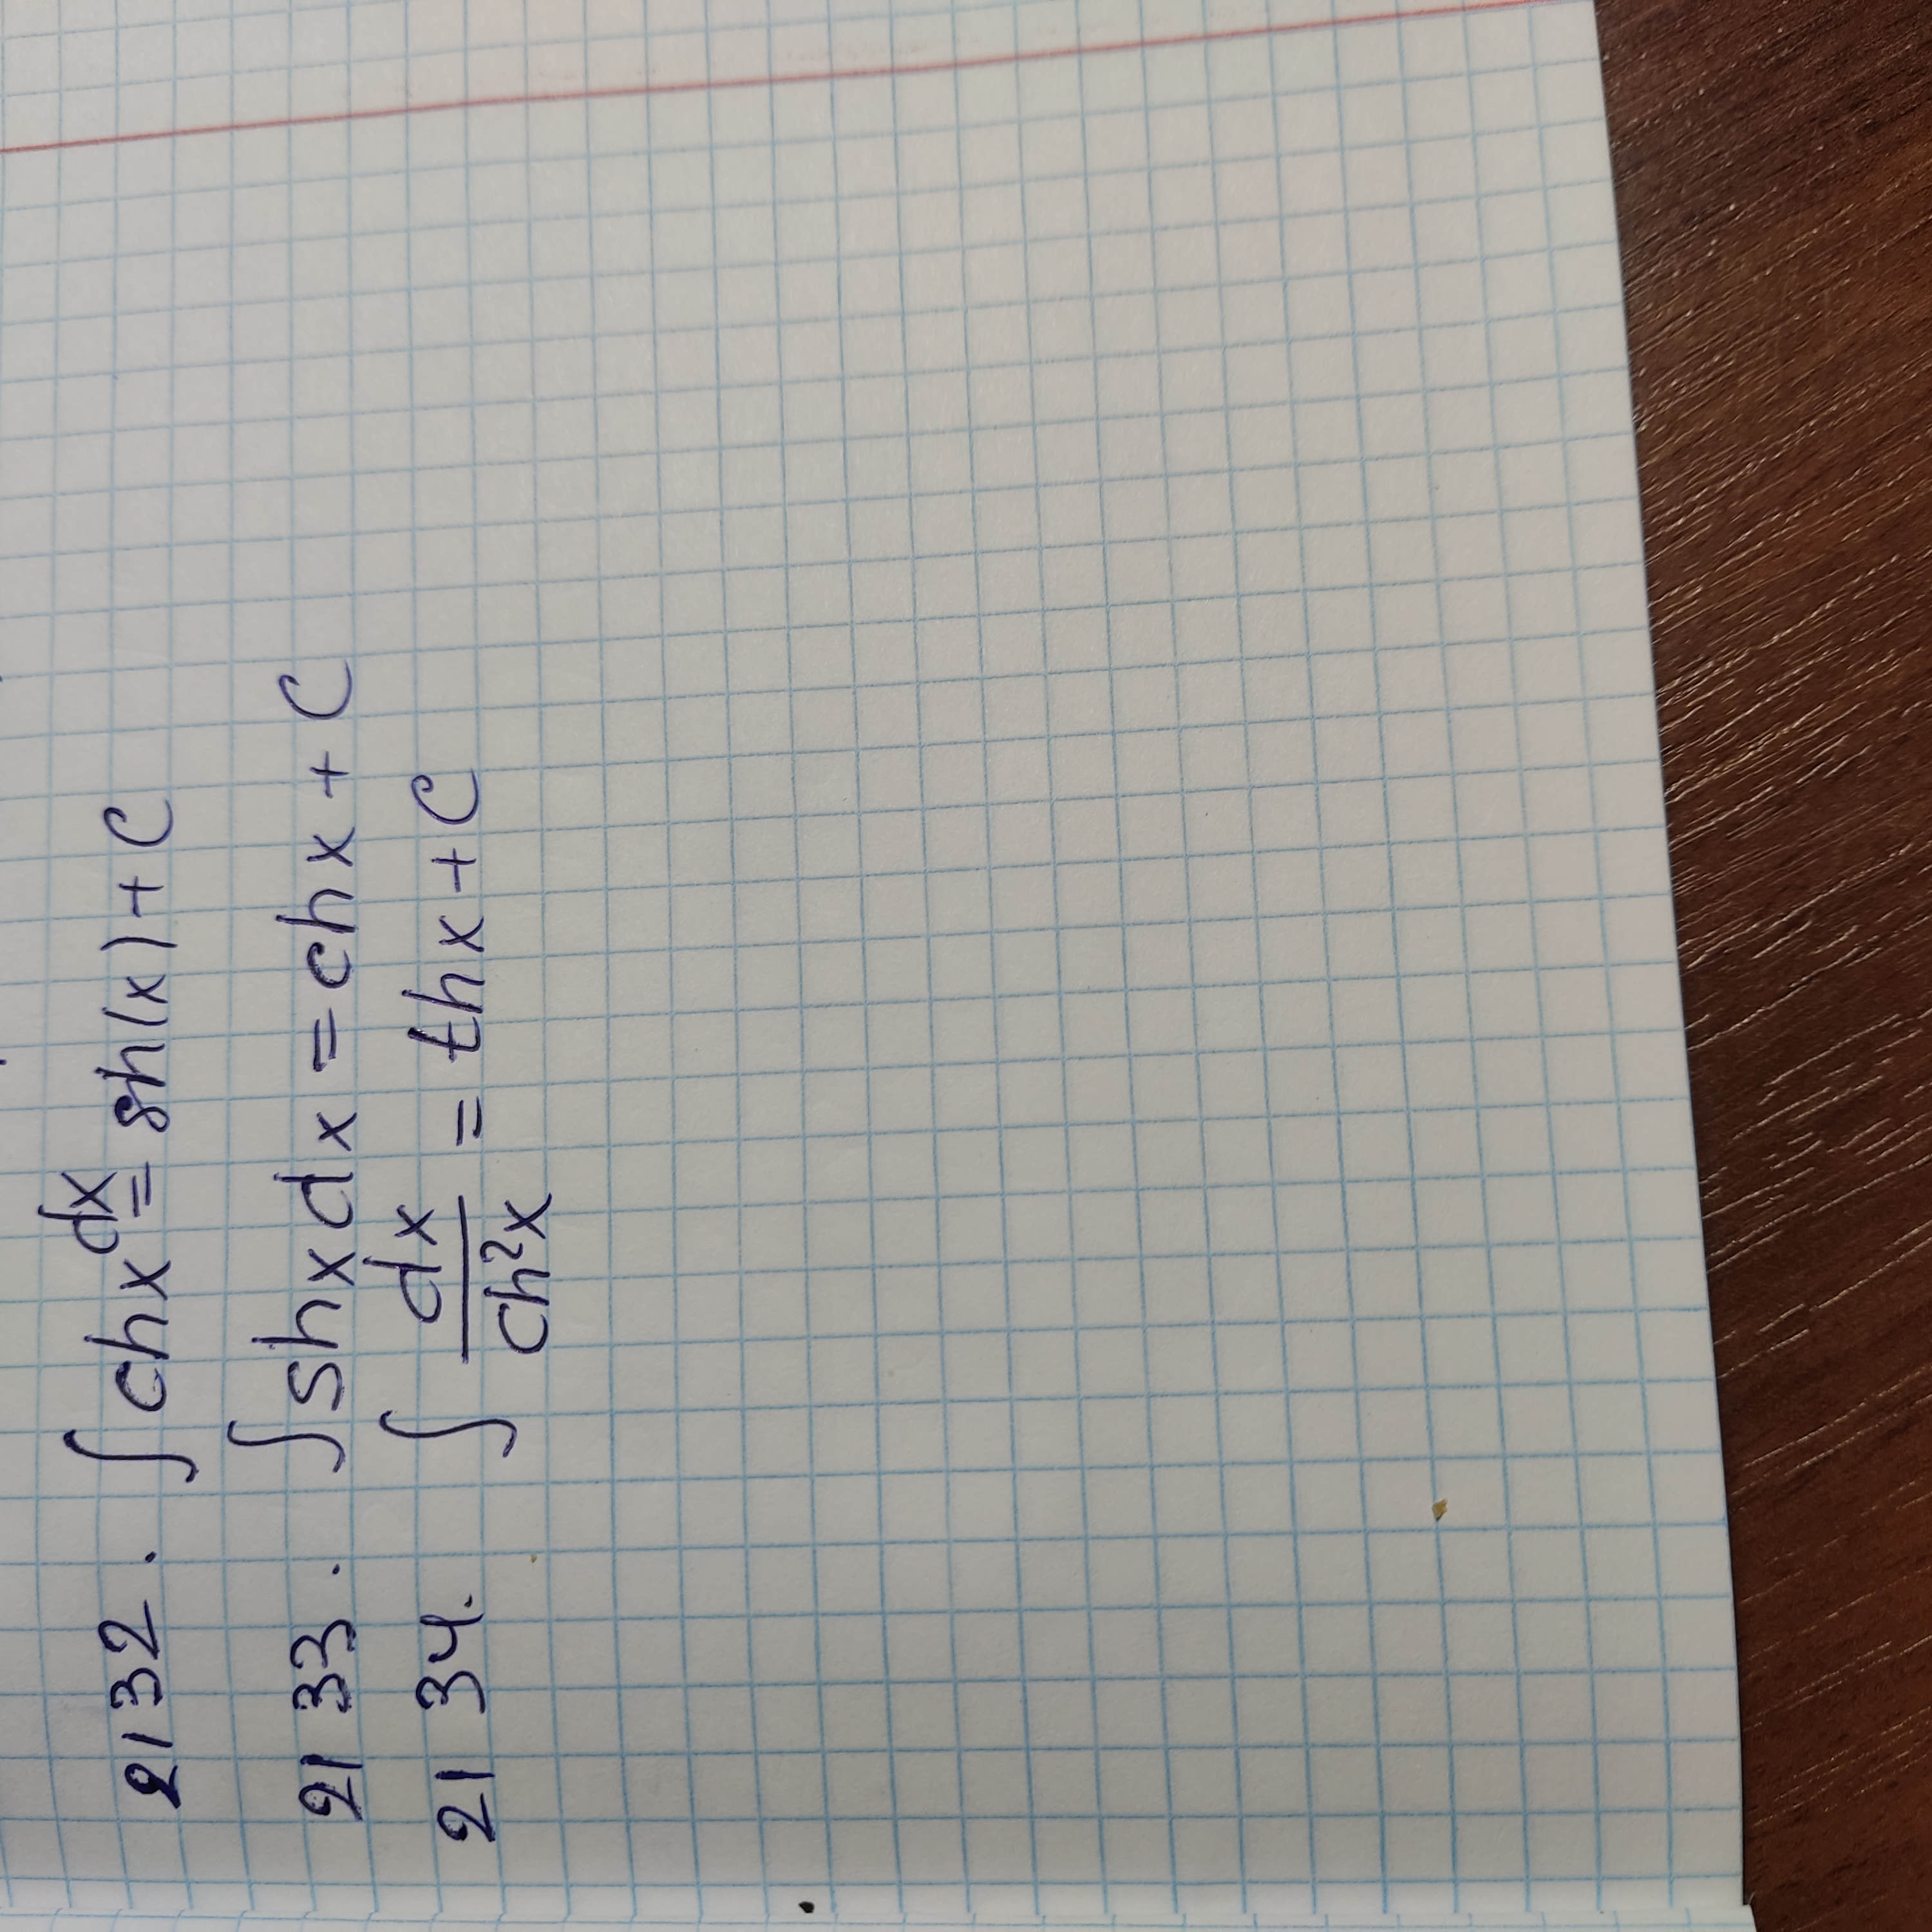 2132. ∫chx dx = sh(x)+C
2133. ∫shxdx = chx + C
2134. ∫ dx/ch²x = thx + C